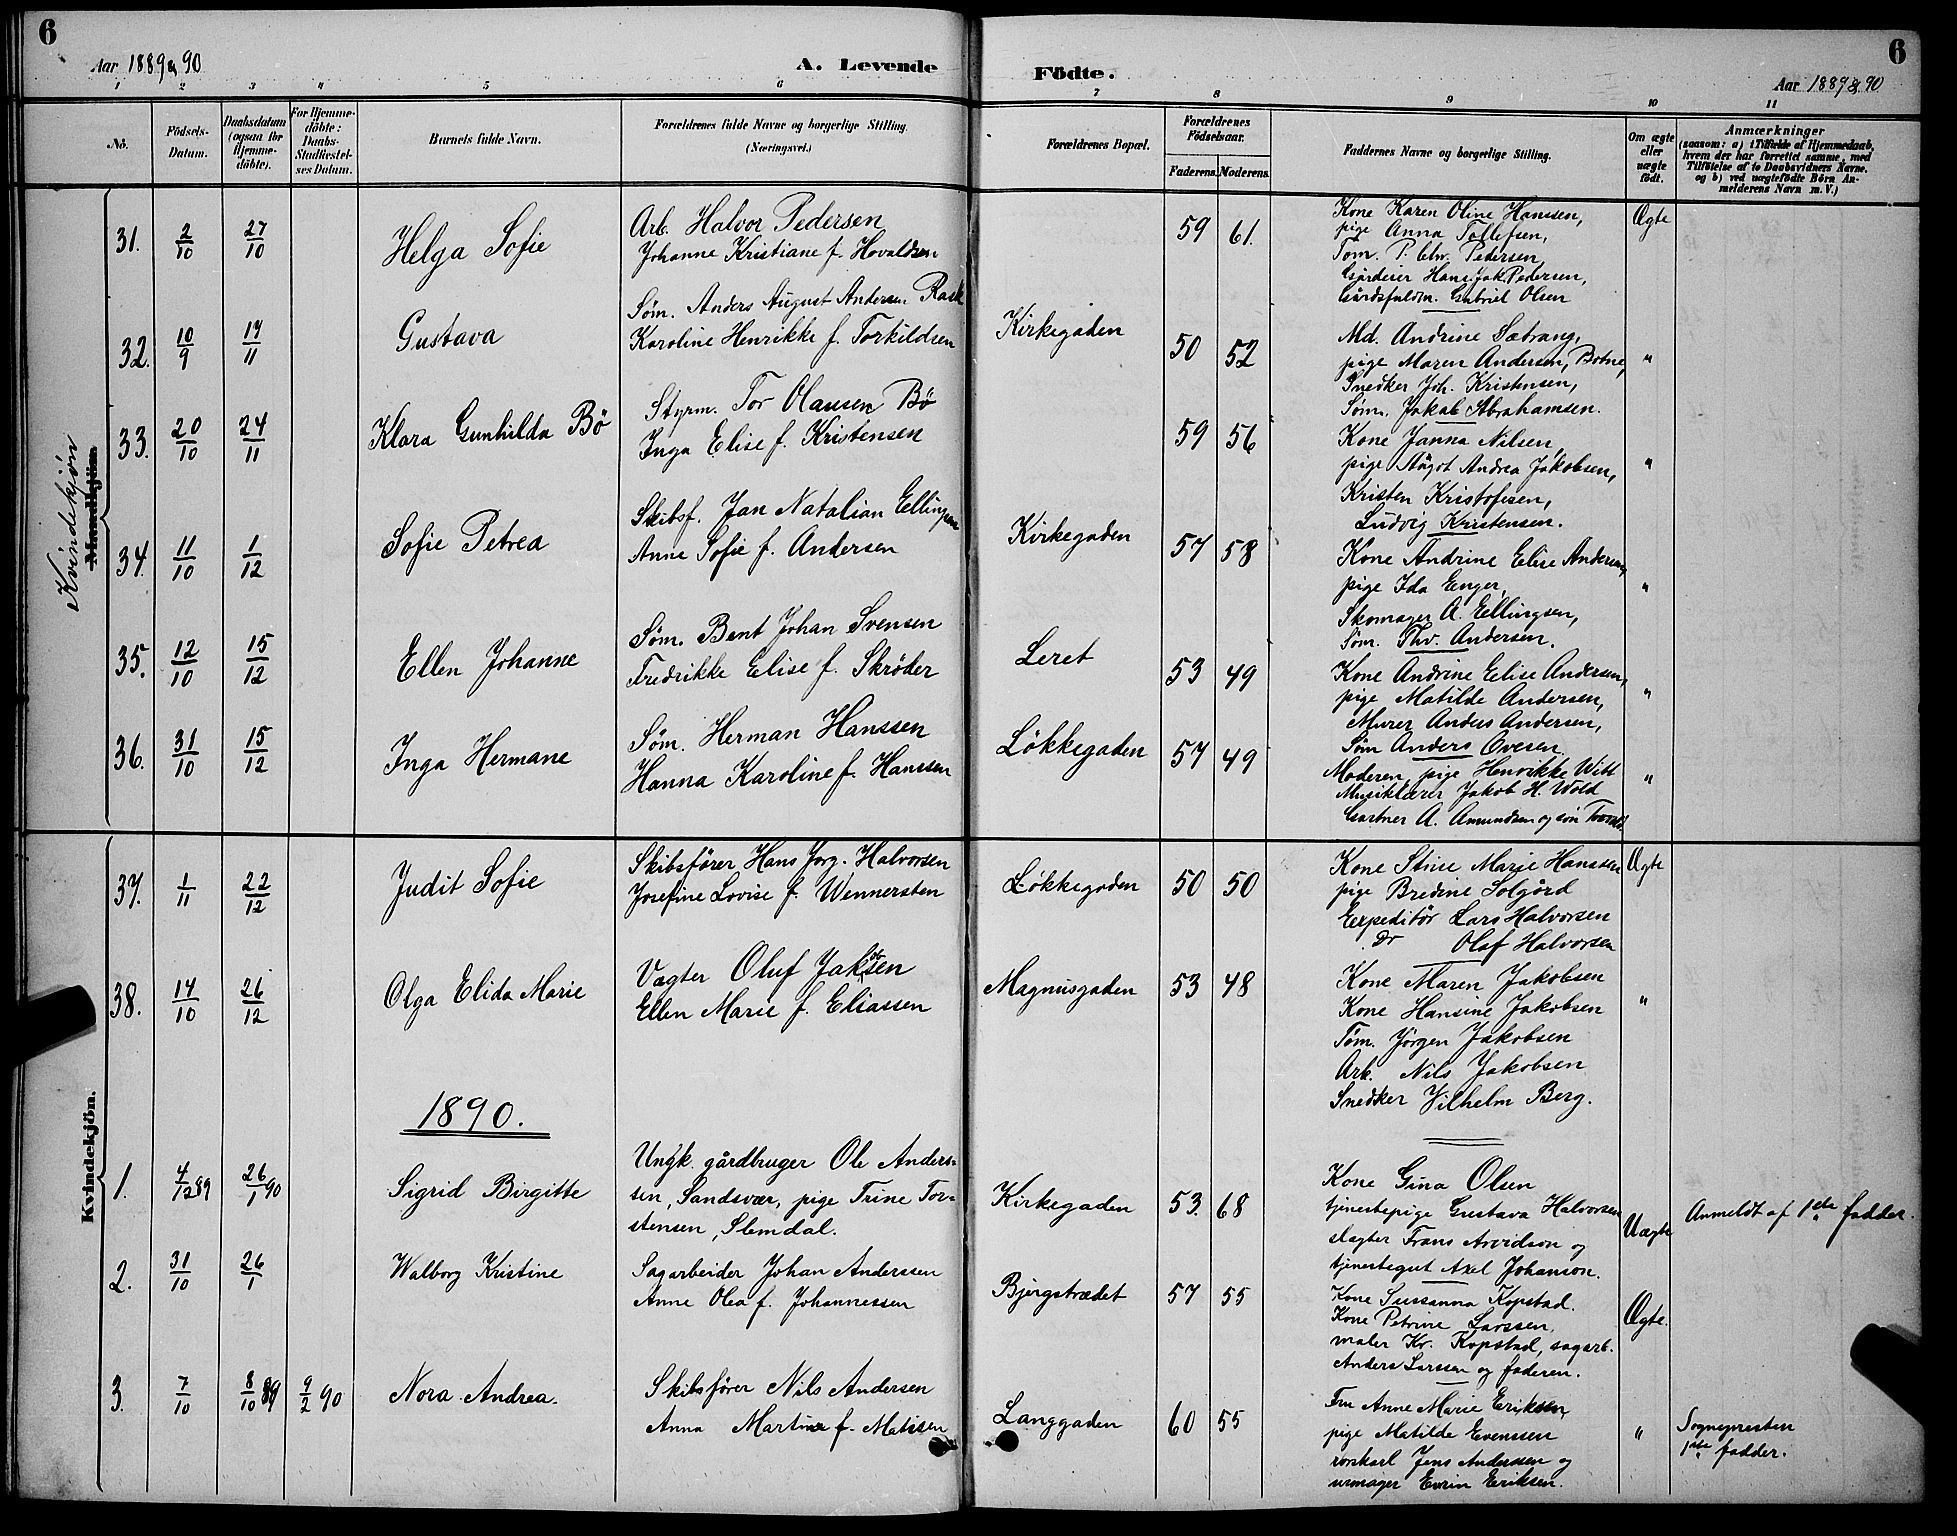 6
Aar 1889 & 90
A. Levende
Födte.
6
Aar 1889 & 90
1 2 3 4 5 6 7 8 9 10 11
No.
Födsels-
Datum.
Daabsdatum
(ogsaa for
Hjemme-
döbte).
For Hjemme-
döbte:
Daabs-
Stadfæstel-
ses Datum.
Barnets fulde Navn.
Forældrenes fulde Navne og borgerlige Stilling.
(Næringsvei.)
Forældrenes Bopæl.
Forældrenes
Födselsaar.
Faderens. Moderens.
Faddernes Navne og borgerlige Stilling.
Om ægte
eller
uægte
födt.
Anmærkninger
(saasom: a) i Tilfælde af Hjemmedaab,
hvem der har forrettet samme, med
Tilföielse af to Daabsvidners Navne.
og b) ved uægtefödte Börn An-
melderens Navn m. V.)
Kvindekjön
Mandkjön
31. 2/10 27/10 Helga Sofie
Arb. Halvor Pedersen
Johanne Kristiane f. Hovaldsen
59 61.
Kone Karen Oline Hanssen,
pige Anna Tollefsen,
Tøm. P. Chr. Pedersen
Gårdeier Hans Jak Pedersen,
Gårdsfuldm. Gabriel Olsen
Ægte
32. 10/9 17/11 Gustava
Søm. Anders August Andersen Rask
Karoline Henrikke f. Torkildsen
Kirkegaden
50 52
Md. Andrine Sætrang,
pige Maren Andersen, Botne,
Snedker Joh. Kristensen,
Søm. Jakob Abrahamsen.
"
33. 20/10 24/11 Klara Gunhilda Bö
Styrm. Tor Olausen Bö
Inga Elise f. Kristensen
59 56
Kone Janna Nilsen,
pige Aagot Andrea Jakobsen,
Kristen Kristofesen,
Ludvig Kristensen.
"
34. 11/10 1/12 Sofie Petrea
Skibsf. Jan Natalian Ellingsen
Anne Sofie f. Andersen
Kirkegaden
57 58
Kone Andrine Elise Andersen,
pige Ida Enger,
Skomager A. Ellingsen,
Søm. Thv. Andersen.
"
35. 12/10 15/12 Ellen Johanne
Søm. Bent Johan Svensen
Fredrikke Elise f. Skröder
Leret
53 49
Kone Andrine Elise Andersen,
pige Matilde Andersen,
Murer Anders Andersen,
Søm Anders Ovesen
"
36. 31/10 15/12 Inga Hermane
Søm. Herman Hanssen
Hanna Karoline f. Hanssen
Lökkegaden
57 49
Moderen, pige Henrikke Witt
Musiklærer Jakob H. Wold
Gartner A. Amundsen og sön
"
37. 1/11 22/12 Judit Sofie
Skibsfører Hans Jørg. Halvorsen
Josefine Lovise f. Wennersten
Lökkegaden
50 50
Kone Stine Marie Hanssen
pige Bredine Solgörd
Expeditör Lars Halvorsen
Do Olaf Halvorsen
Ægte
38. 14/10 26/12 Olga Elida Marie
Vægter Oluf Jakobsen
Ellen Marie f. Eliassen
Magnusgaden
53 48
Kone Maren Jakobsen
Kone Hansine Jakobsen
Tøm. Jörgen Jakobsen
Arb. Nils Jakobsen
Snedker Vilhelm Berg.
"
1890.
Kvindekjön.
1. 4/12 89 26/1 90 Sigrid Birgitte
Ungk. gårdbruger Ole Anders-
sen, Sandsvær, pige Trine Tor-
stensen, Slemdal.
Kirkegaden
53. 68
Kone Gina Olsen
tjenestepige Gustava Halvorsen
slagter Frans Arvidson og
tjenestegut Axel Johanson.
Uægte
Anmeldt af 1ste fadder.
2. 31/10 26/1 Walborg Kristine
Sagarbeider Johan Anderssen
Anne Olea f. Johannessen
Bjergstrædet
57 55
Kone Sussanna Kopstad.
Kone Petrine Larssen,
maler Kr. Kopstad, sagarb.
Anders Larssen og faderen.
Ægte.
3. 7/10 8/10 89 9/2 90 Nora Andrea.
Skibsfører Nils Andersen
Anna Martine f. Matisen
Langgaden
60 55
Fru Anne Marie Eriksen
pige Matilde Evenssen
rorskarl Jens Anderssen og
urmager Eriksen.
"
Sognepresten
1ste fadder.